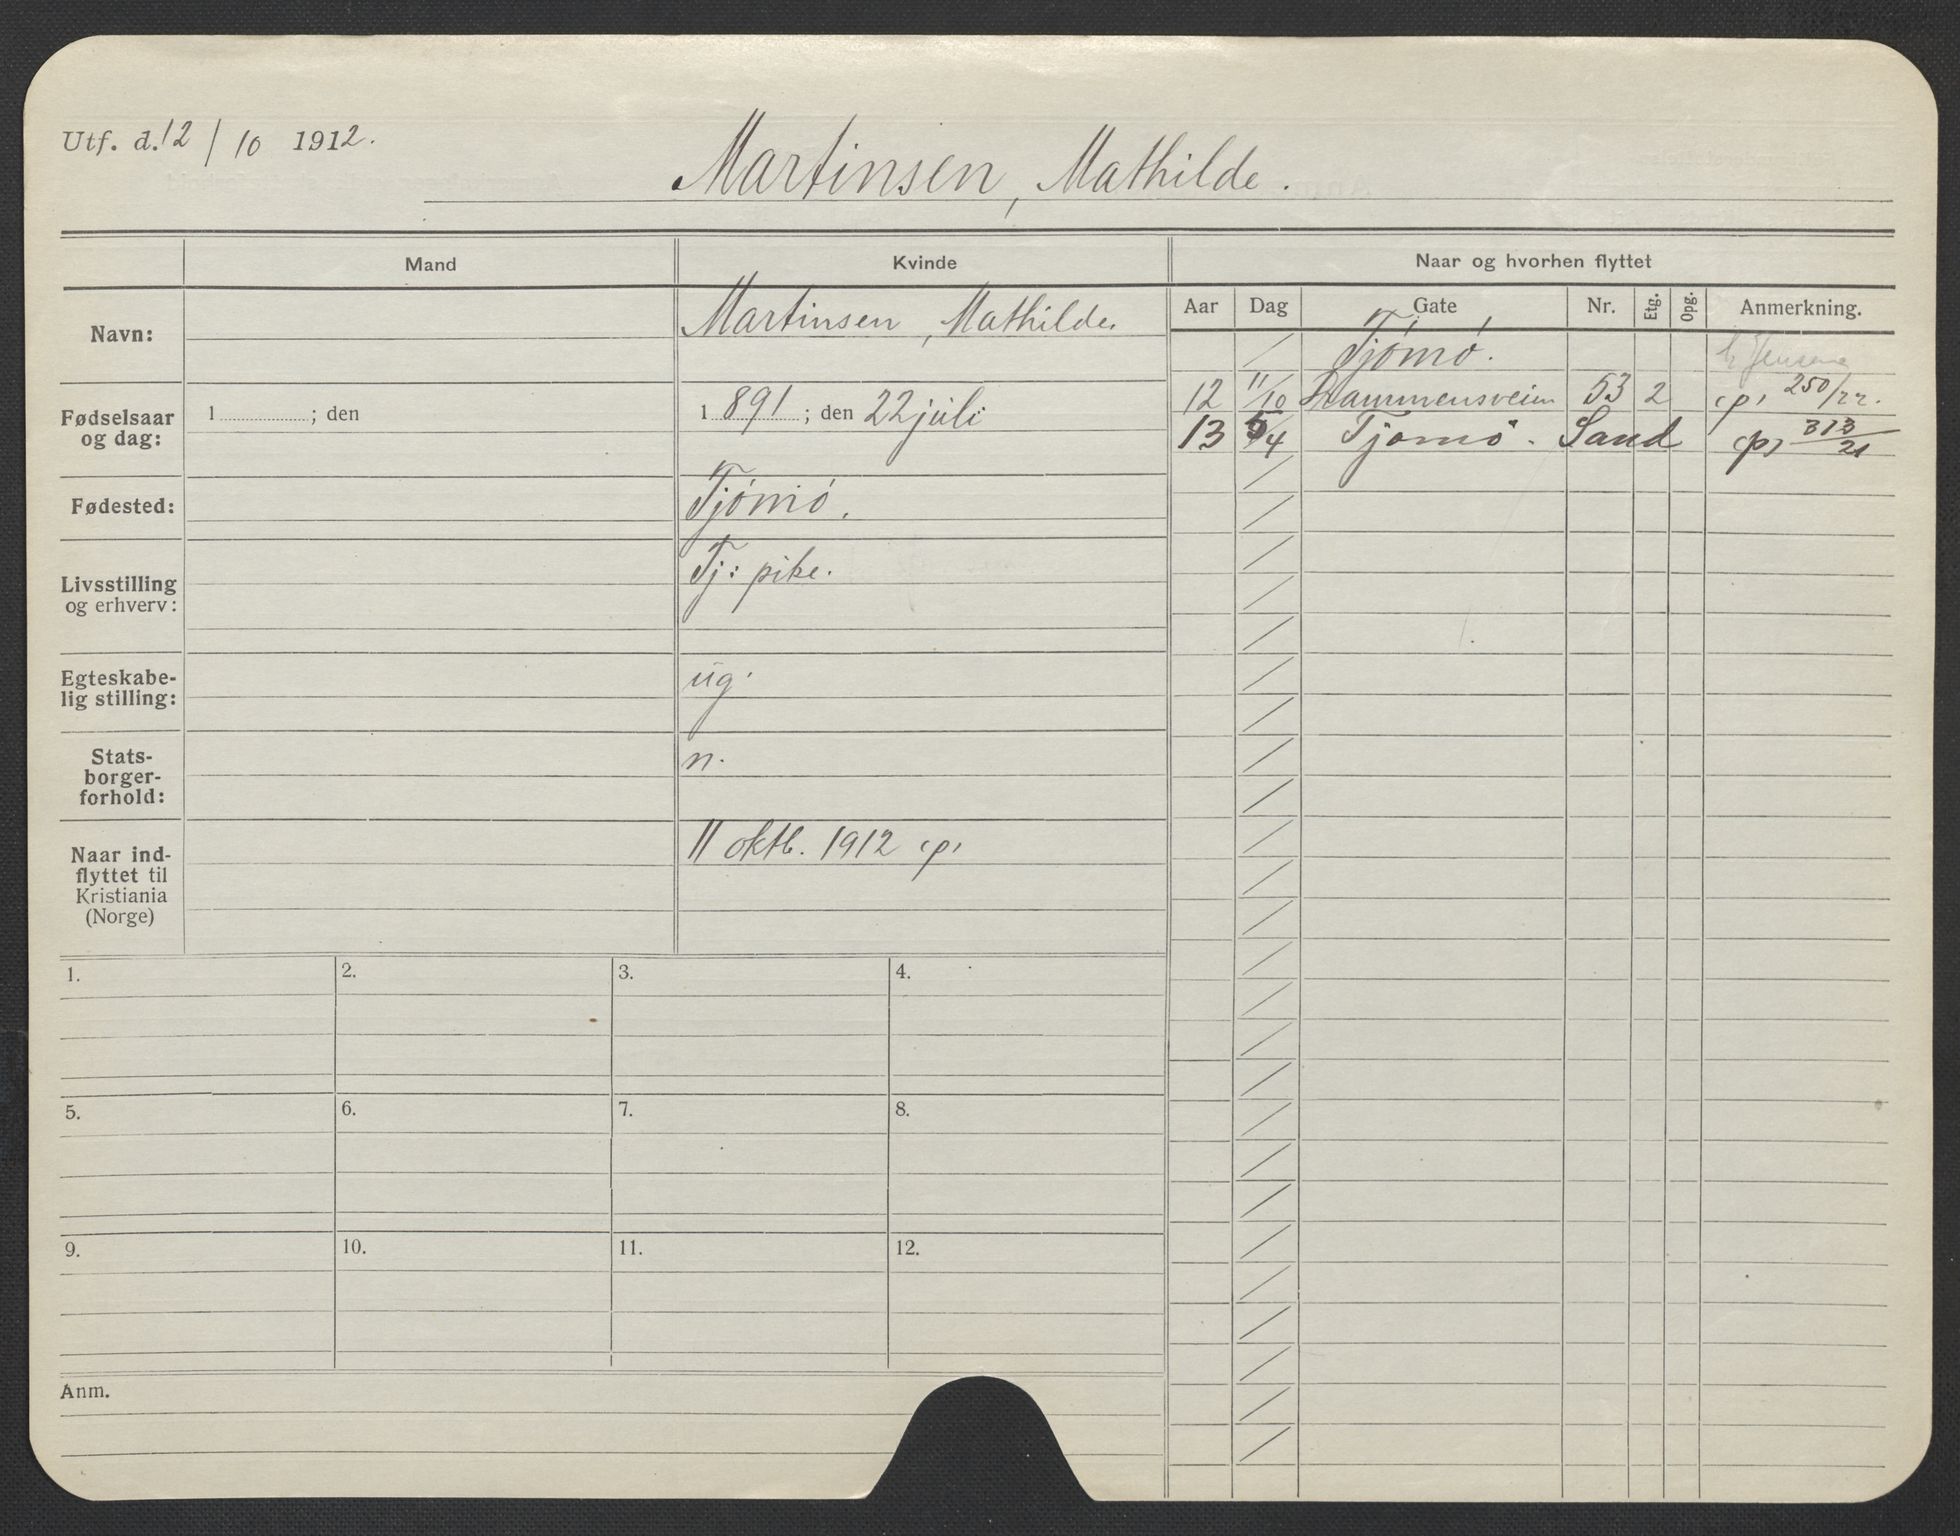 Utf. d. 12/10 1912.
Martinsen, Mathilde.
Mand
Kvinde
Naar og hvorhen flyttet
Navn:
Martinsen, Mathilde.
Aar Dag Gate Nr. Etg. Opg. Anmerkning.
Tjømø. h. Jensen
12 11/10 Drammensveien 53 2 p, 250/22.
13 5/4 Tjømø. Sand p, 313/21
Fødselsaar
og dag:
1 ; den
1 891 ; den 22 juli
Fødested:
Tjømø.
Livsstilling
og erhverv:
Tj: pike.
Egteskabe-
lig stilling:
ug.
Stats-
borger-
forhold:
n.
Naar ind-
flyttet til
Kristiania
(Norge)
11 oktb. 1912 p,
1. 2. 3. 4.
5. 6. 7. 8.
9. 10. 11. 12.
Anm.